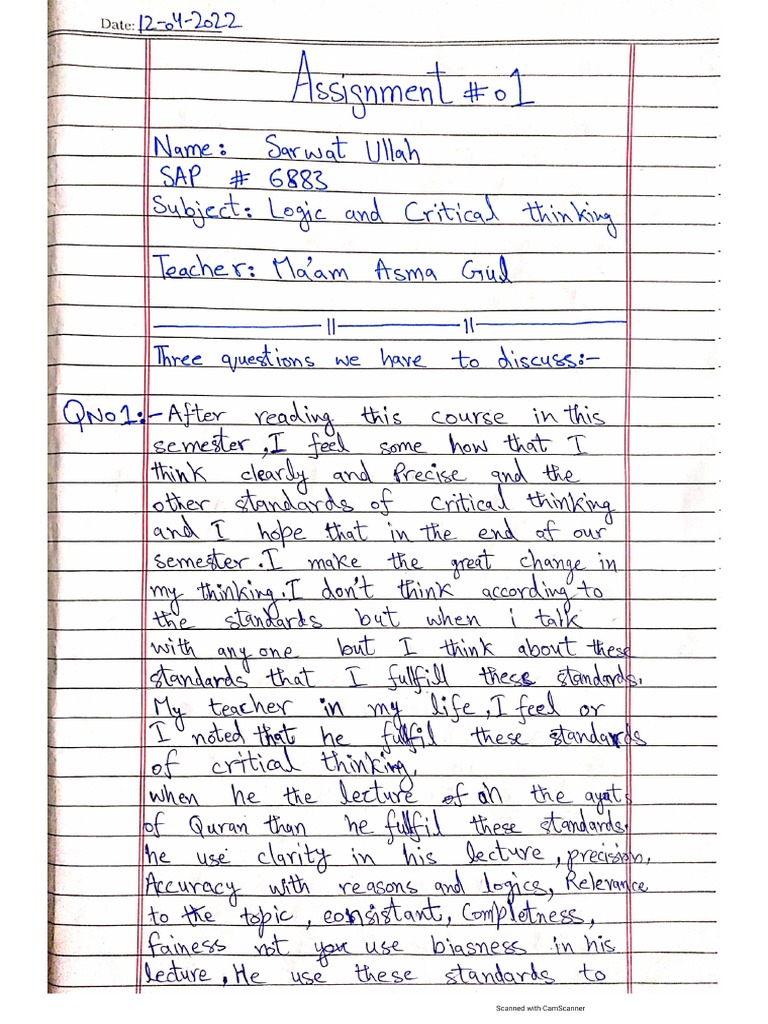 Date: 12-04-2022
Assignment # 01
Name: Sarwat Ullah
SAP # 6883
Subject: Logic and Critical thinking
Teacher: Ma'am Asma Gul
Three questions we have to discuss:-
QNo1:- After reading this course in this
semester, I feel some how that I
think clearly and Precise and the
other standards of critical thinking
and I hope that in the end of our
semester. I make the great change in
my thinking. I don't think according to
the standards but when i talk
with any one but I think about these
standards that I fullfill these standards.
My teacher in my life, I feel or
I noted that he fullfil these standards
of critical thinking,
when he the lecture of on the ayats
of Quran than he fullfil these standards.
he use clarity in his lecture, precision,
Accuracy with reasons and logics, Relevance
to the topic, consistant, Completness,
fainess not you use biasness in his
lecture, He use these standards to
Scanned with CamScanner